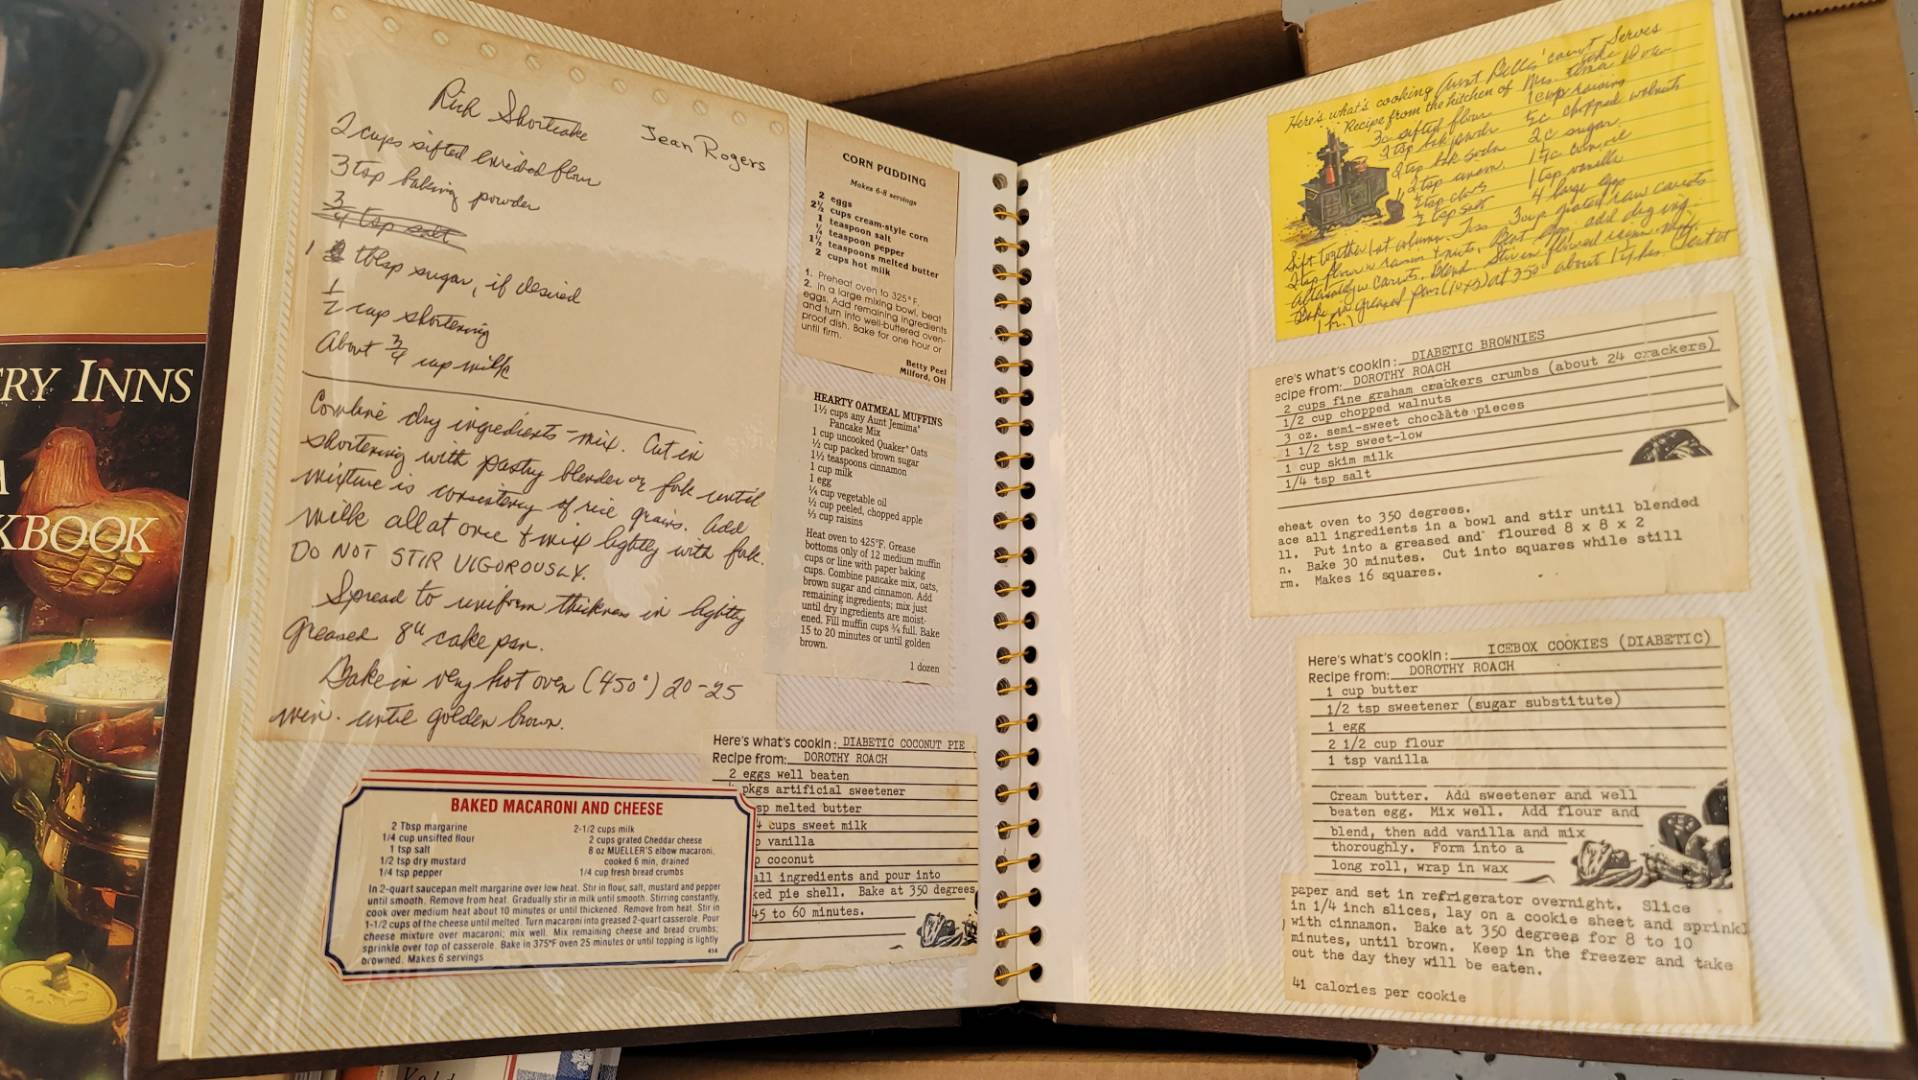 RY INNS
A
KBOOK
Rich Shortcake
Jean Rogers
2 cups sifted enriched flour
3 tsp baking powder
3/4 tsp salt
1 tblsp sugar, if desired
1/2 cup shortening
About 3/4 cup milk
Combine dry ingredients - mix. Cut in
shortening with pastry blender or fork until
mixture is consistency of rice grains. Add
milk all at once + mix lightly with fork.
DO NOT STIR VIGOROUSLY.
Spread to uniform thickness in lightly
greased 8" cake pan.
Bake in very hot oven (450°) 20-25
min. until golden brown.
CORN PUDDING
Makes 6-8 servings
2 eggs
2½ cups cream-style corn
1 teaspoon salt
¼ teaspoon pepper
1½ teaspoons melted butter
2 cups hot milk
1. Preheat oven to 325°F.
2. In a large mixing bowl, beat
eggs. Add remaining ingredients
and turn into well-buttered oven-
proof dish. Bake for one hour or
until firm.
Betty Peel
Milford, OH
HEARTY OATMEAL MUFFINS
1½ cups any Aunt Jemima®
Pancake Mix
1 cup uncooked Quaker® Oats
½ cup packed brown sugar
1½ teaspoons cinnamon
1 cup milk
1 egg
¼ cup vegetable oil
½ cup peeled, chopped apple
⅓ cup raisins
Heat oven to 425°F. Grease
bottoms only of 12 medium muffin
cups or line with paper baking
cups. Combine pancake mix, oats,
brown sugar and cinnamon. Add
remaining ingredients; mix just
until dry ingredients are moist-
ened. Fill muffin cups ¾ full. Bake
15 to 20 minutes or until golden
brown.
1 dozen
BAKED MACARONI AND CHEESE
2 Tbsp margarine
1/4 cup unsifted flour
1 tsp salt
1/2 tsp dry mustard
1/4 tsp pepper
2-1/2 cups milk
2 cups grated Cheddar cheese
8 oz MUELLER'S elbow macaroni,
cooked 6 min, drained
1/4 cup fresh bread crumbs
In 2-quart saucepan melt margarine over low heat. Stir in flour, salt, mustard and pepper
until smooth. Remove from heat. Gradually stir in milk until smooth. Stirring constantly,
cook over medium heat about 10 minutes or until thickened. Remove from heat. Stir in
1-1/2 cups of the cheese until melted. Turn macaroni into greased 2-quart casserole. Pour
cheese mixture over macaroni; mix well. Mix remaining cheese and bread crumbs;
sprinkle over top of casserole. Bake in 375°F oven 25 minutes or until topping is lightly
browned. Makes 6 servings
Here's what's cookin: DIABETIC COCONUT PIE
Recipe from: DOROTHY ROACH
2 eggs well beaten
pkgs artificial sweetener
sp melted butter
4 cups sweet milk
p vanilla
p coconut
all ingredients and pour into
ked pie shell. Bake at 350 degrees
45 to 60 minutes.
Here's what's cooking Aunt Bell's carrot cake Serves
Recipe from the kitchen of Mrs.
3c sifted flour
2 tsp bak powder
2 tsp bak soda
2 tsp cinnam
½ tsp cloves
½ tsp salt
1 cup raisins
½c chopped walnuts
2c sugar
1 tsp vanilla
4 large eggs
3 cup grated raw carrots
Sift together 1st column.
2 tsp flour raisins + nuts. Beat eggs, add dry ing.
carrots. Blend. Stir in floured
Bake in greased pan at 350° about 1¼ hrs.
ere's what's cookin: DIABETIC BROWNIES
ecipe from: DOROTHY ROACH
2 cups fine graham crackers crumbs (about 24 crackers)
1/2 cup chopped walnuts
3 oz. semi-sweet choclate pieces
1 1/2 tsp sweet-low
1 cup skim milk
1/4 tsp salt
eheat oven to 350 degrees.
ace all ingredients in a bowl and stir until blended
ll. Put into a greased and floured 8 x 8 x 2
n. Bake 30 minutes. Cut into squares while still
rm. Makes 16 squares.
Here's what's cookin: ICEBOX COOKIES (DIABETIC)
Recipe from: DOROTHY ROACH
1 cup butter
1/2 tsp sweetener (sugar substitute)
1 egg
2 1/2 cup flour
1 tsp vanilla
Cream butter. Add sweetener and well
beaten egg. Mix well. Add flour and
blend, then add vanilla and mix
thoroughly. Form into a
long roll, wrap in wax
paper and set in refrigerator overnight. Slice
in 1/4 inch slices, lay on a cookie sheet and sprinkl
with cinnamon. Bake at 350 degrees for 8 to 10
minutes, until brown. Keep in the freezer and take
out the day they will be eaten.
41 calories per cookie